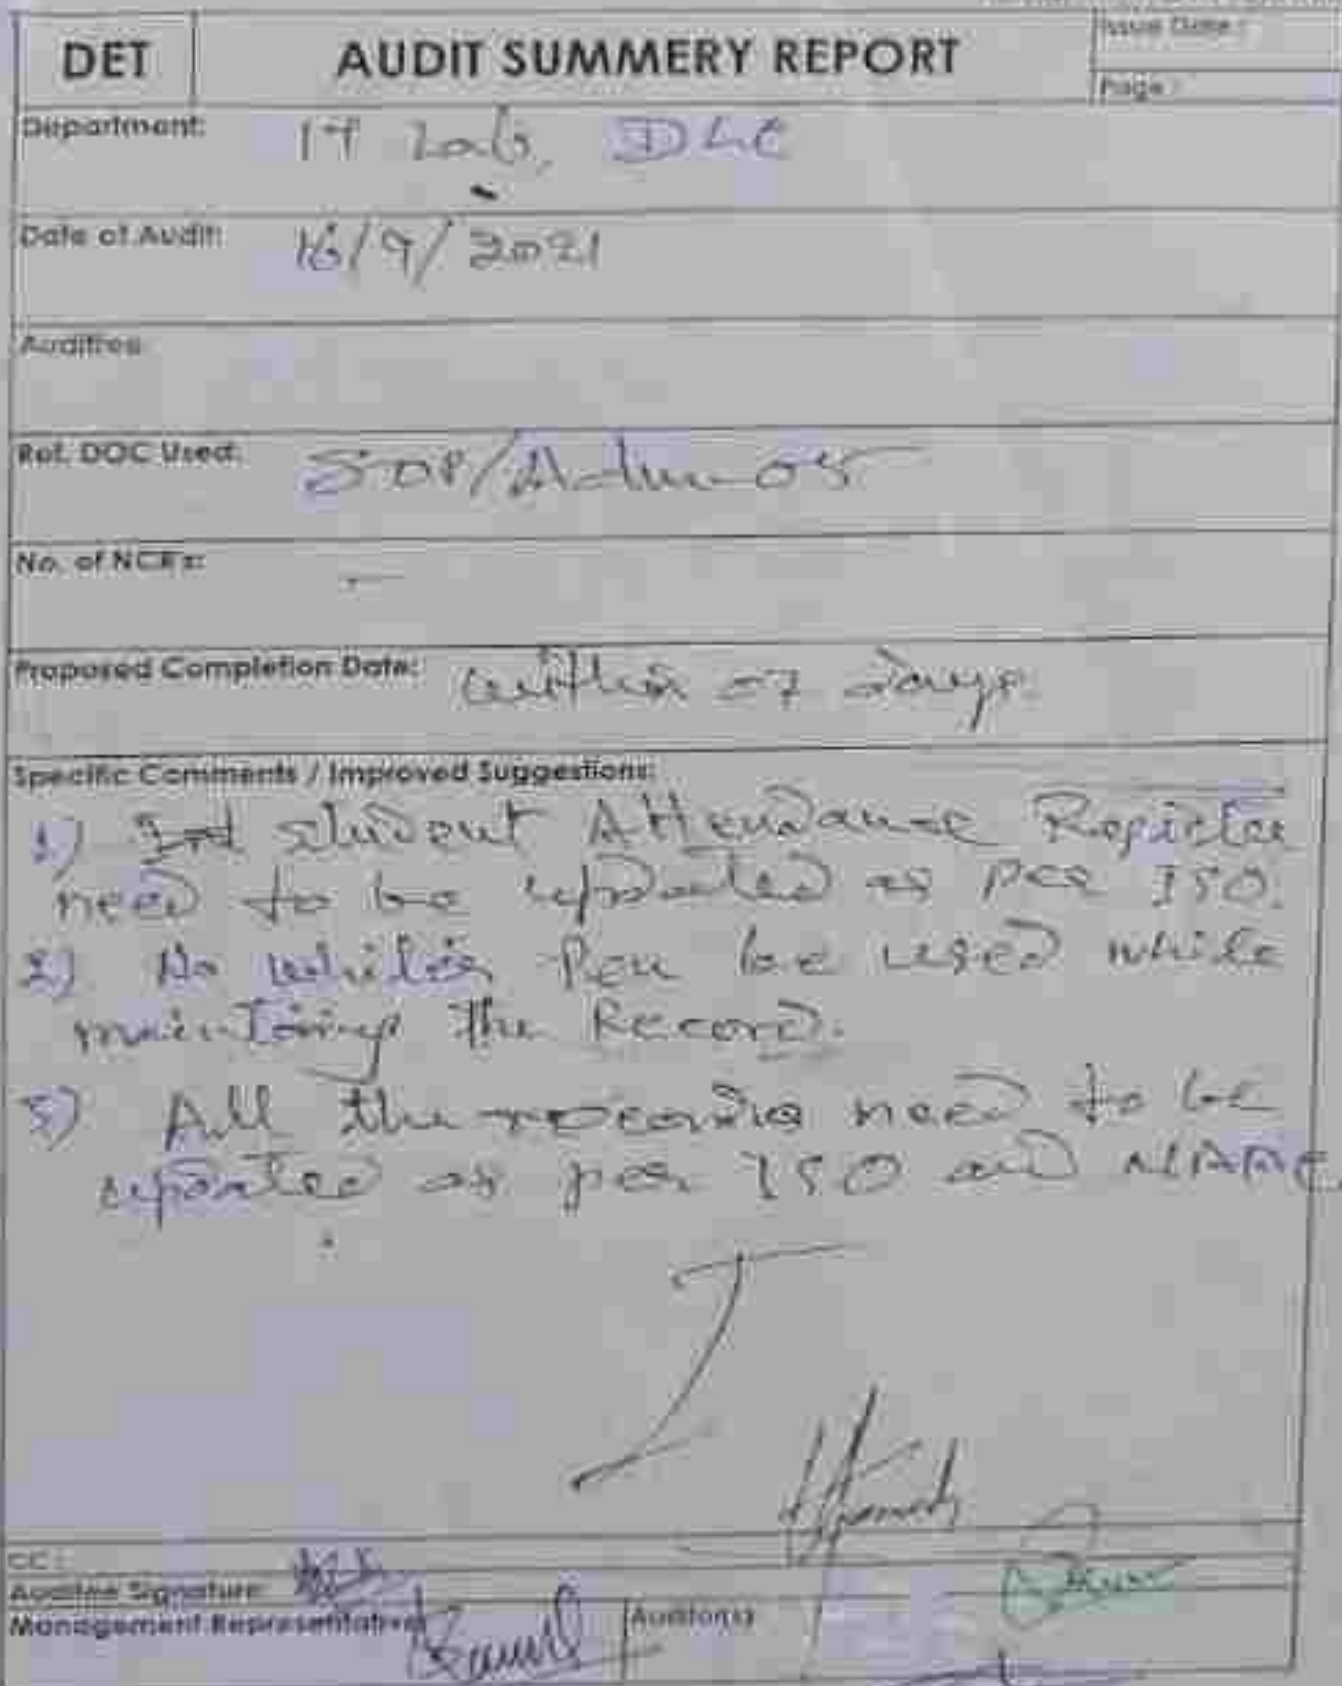 DET
AUDIT SUMMERY REPORT
Issue Date :
Page :
Department: IT Lab, DLC
Date of Audit: 16/9/2021
Auditees:
Ref. DOC Used: SOP/Adm-05
No. of NCR's: -
Proposed Completion Date: within 07 days.
Specific Comments / Improved Suggestions:
1) student Attendance Register
need to be updated as per ISO.
2) No whiter Pen be used while
maintaing the Record.
3) All the records need to be
updated as per ISO and
CC :
Auditee Signature:
Management Representative
Auditor(s)